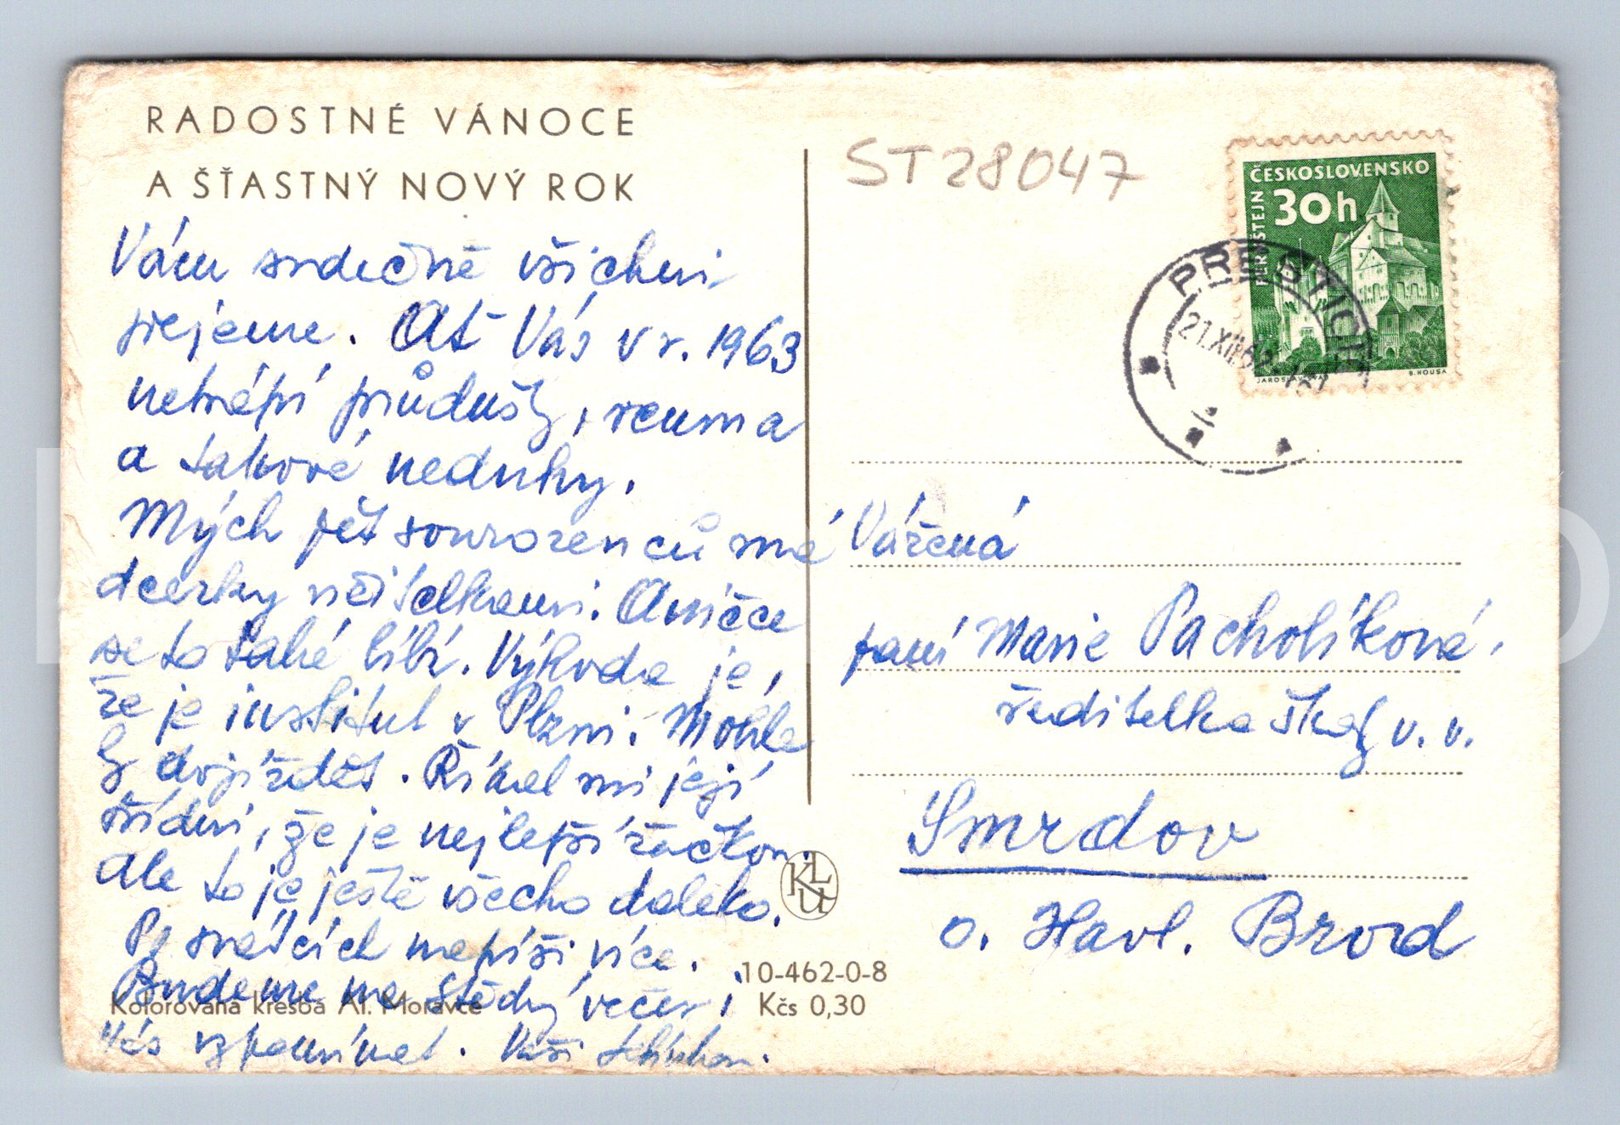 RADOSTNÉ VÁNOCE
A ŠŤASTNÝ NOVÝ ROK
Vám srdečně všichni
přejeme. Ať Vás v r. 1963
netrápí průdušky, reuma
a takové neduhy.
Mých pět sourozenců má
dcerky učitelkami. Aničce
se to také líbí. Výhoda je,
že je institut v Plzni. Mohla
by dojíždět. Říkal mi její
třídní, že je nejlepší žačkou.
Ale to je ještě všecko daleko.
Po svátcích napíši více.
Budeme na Štědrý večer i
Vás vzpomínat. Vaši
Kolorovaná kresba Al. Moravce
KLU
10-462-0-8
Kčs 0,30
ST28047
ČESKOSLOVENSKO
30h
PERNŠTEJN
B. HOUSA
PŘEŠTICE
21.XII.62
Vážená
paní Marie Pacholíková,
ředitelka školy v. v.
Smrdov
o. Havl. Brod